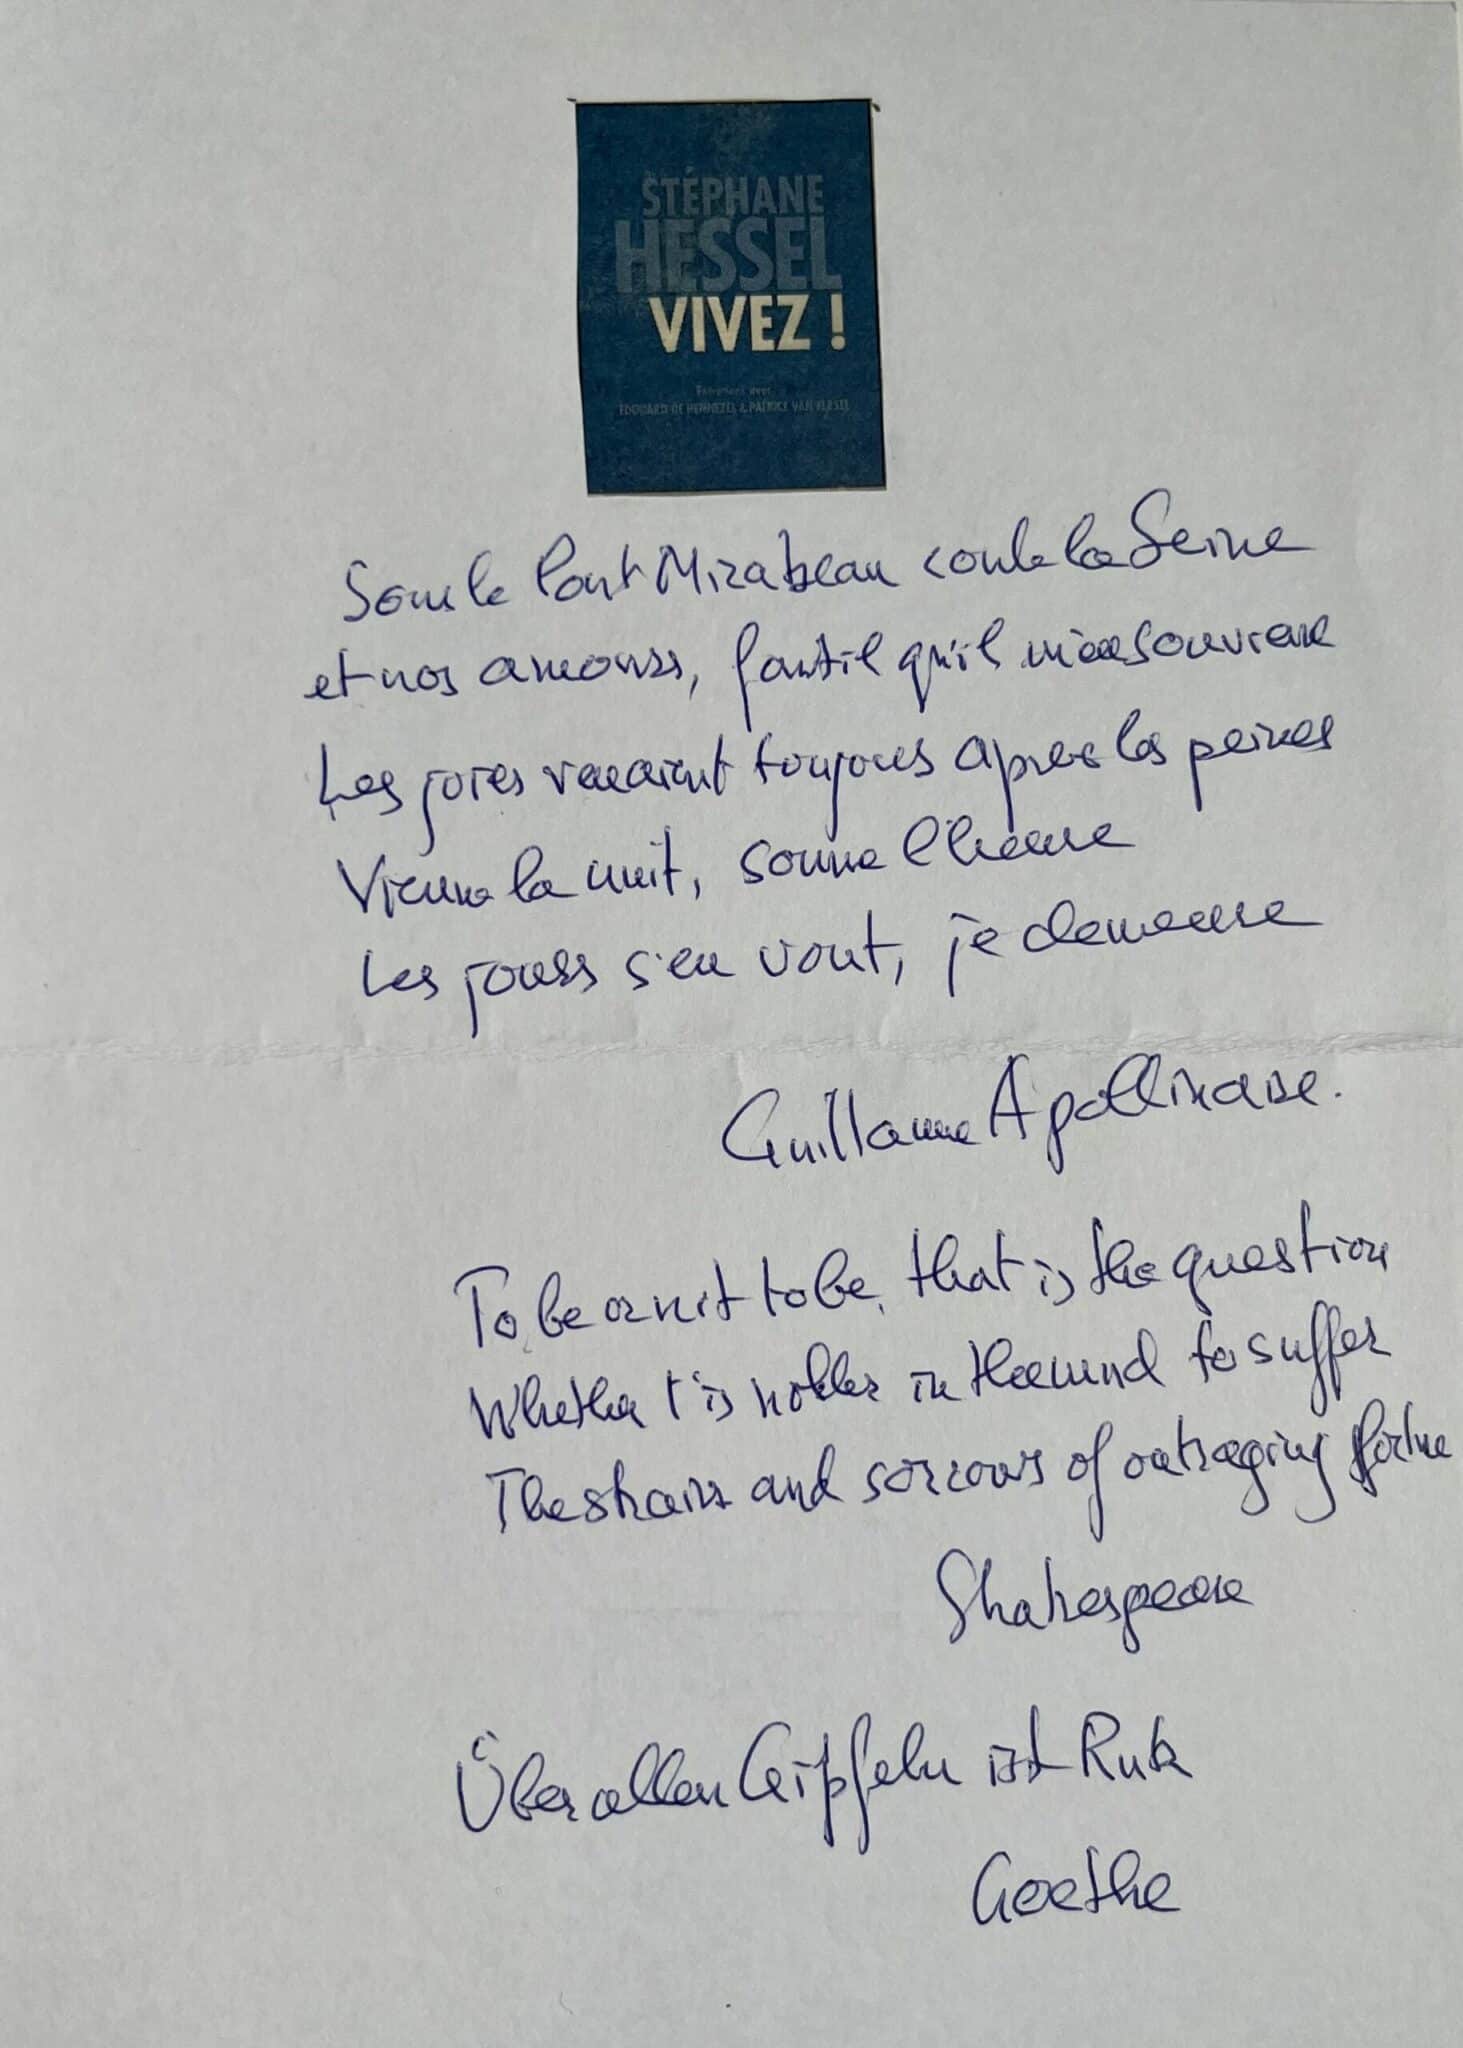 STÉPHANE
HESSEL
VIVEZ !
Entretiens avec
EDOUARD DE HENNEZEL & PATRICE VAN EERSEL
Sous le Pont Mirabeau coule la Seine
et nos amours, faut il qu'il m'en souvienne
Les joies venaient toujours après les peines
Vienne la nuit, sonne l'heure
Les jours s'en vont, je demeure
Guillaume Apollinaire.
To be or not to be, that is the question
Whether t'is nobler in the mind to suffer
The strains and sorrows of outraging fortune
Shakespeare
Über allen Gipfeln ist Ruh
Goethe